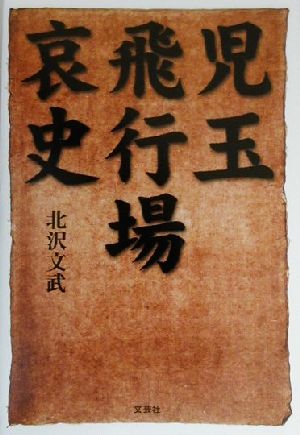 児玉
飛行場
哀史
北沢文武
文芸社